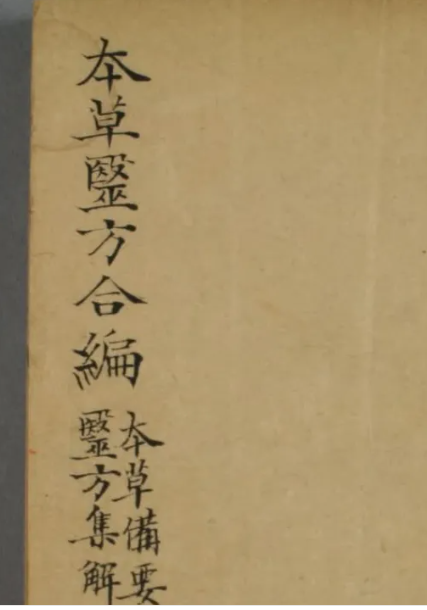 本草毉方合編
本草備要
毉方集解